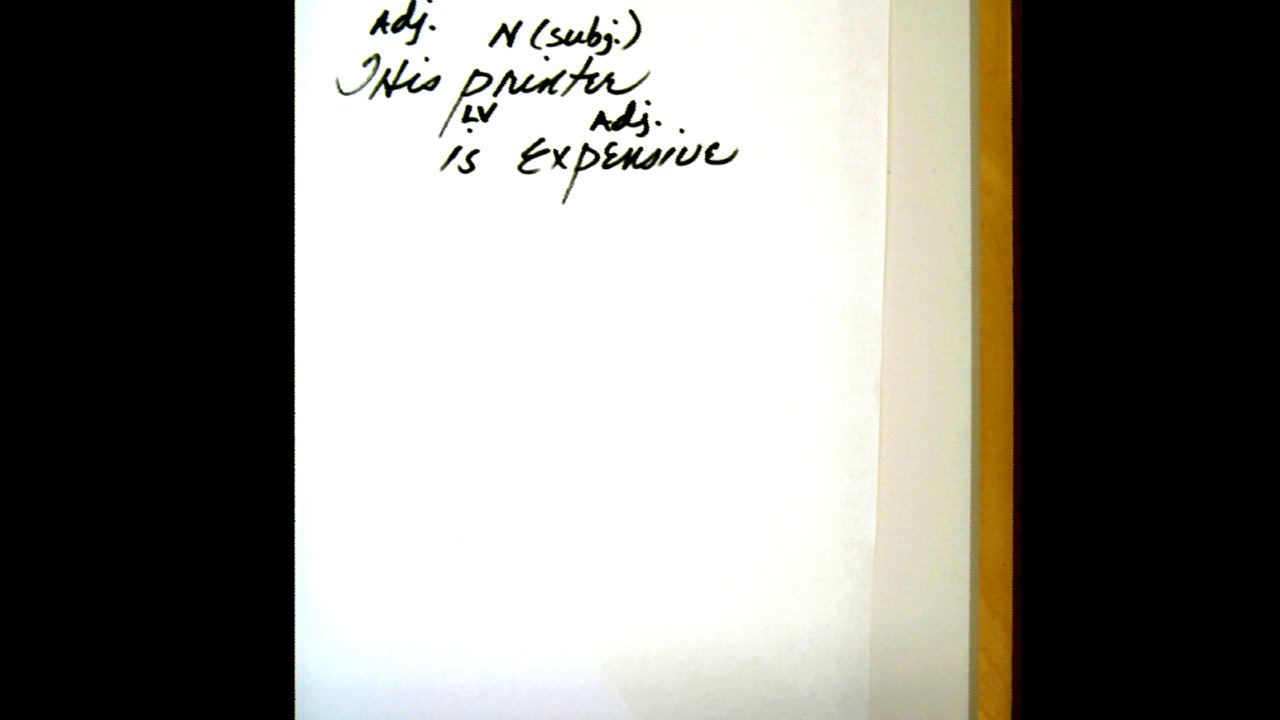 Adj. N (subj.)
THis printer
LV Adj.
is Expensive